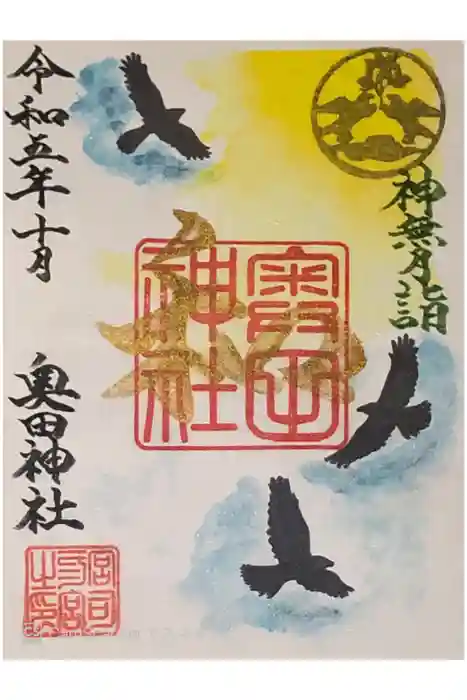 神無月詣
奥田
神社
令和五年十月
奥田神社
宮司
之印